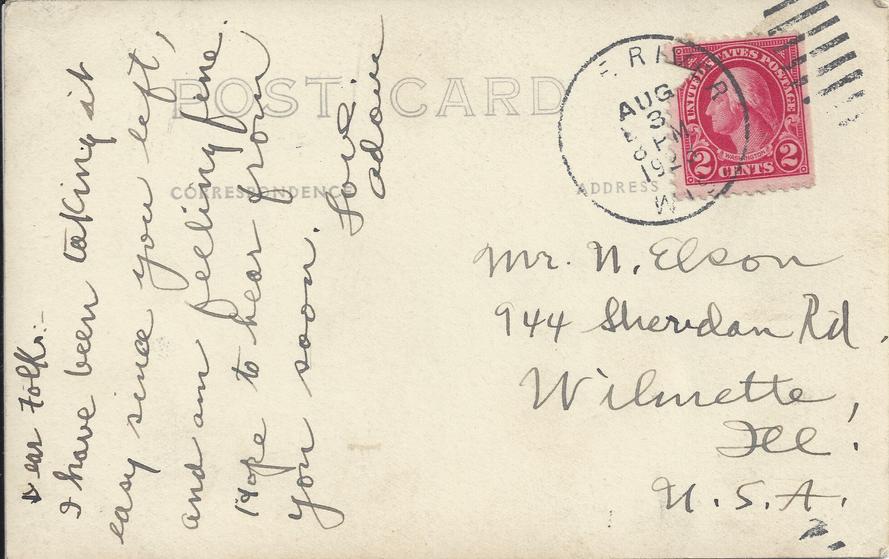 POST CARD
CORRESPONDENCE
ADDRESS
Dear Folks:-
I have been taking it
easy since you left,
and am feeling fine.
Hope to hear from
you soon.
Love
AUG
3
PM
192
WIS
UNITED STATES POSTAGE
WASHINGTON
2 CENTS 2
Mr. N. Elson
944 Sheridan Rd.
Wilmette,
Ill.
U.S.A.